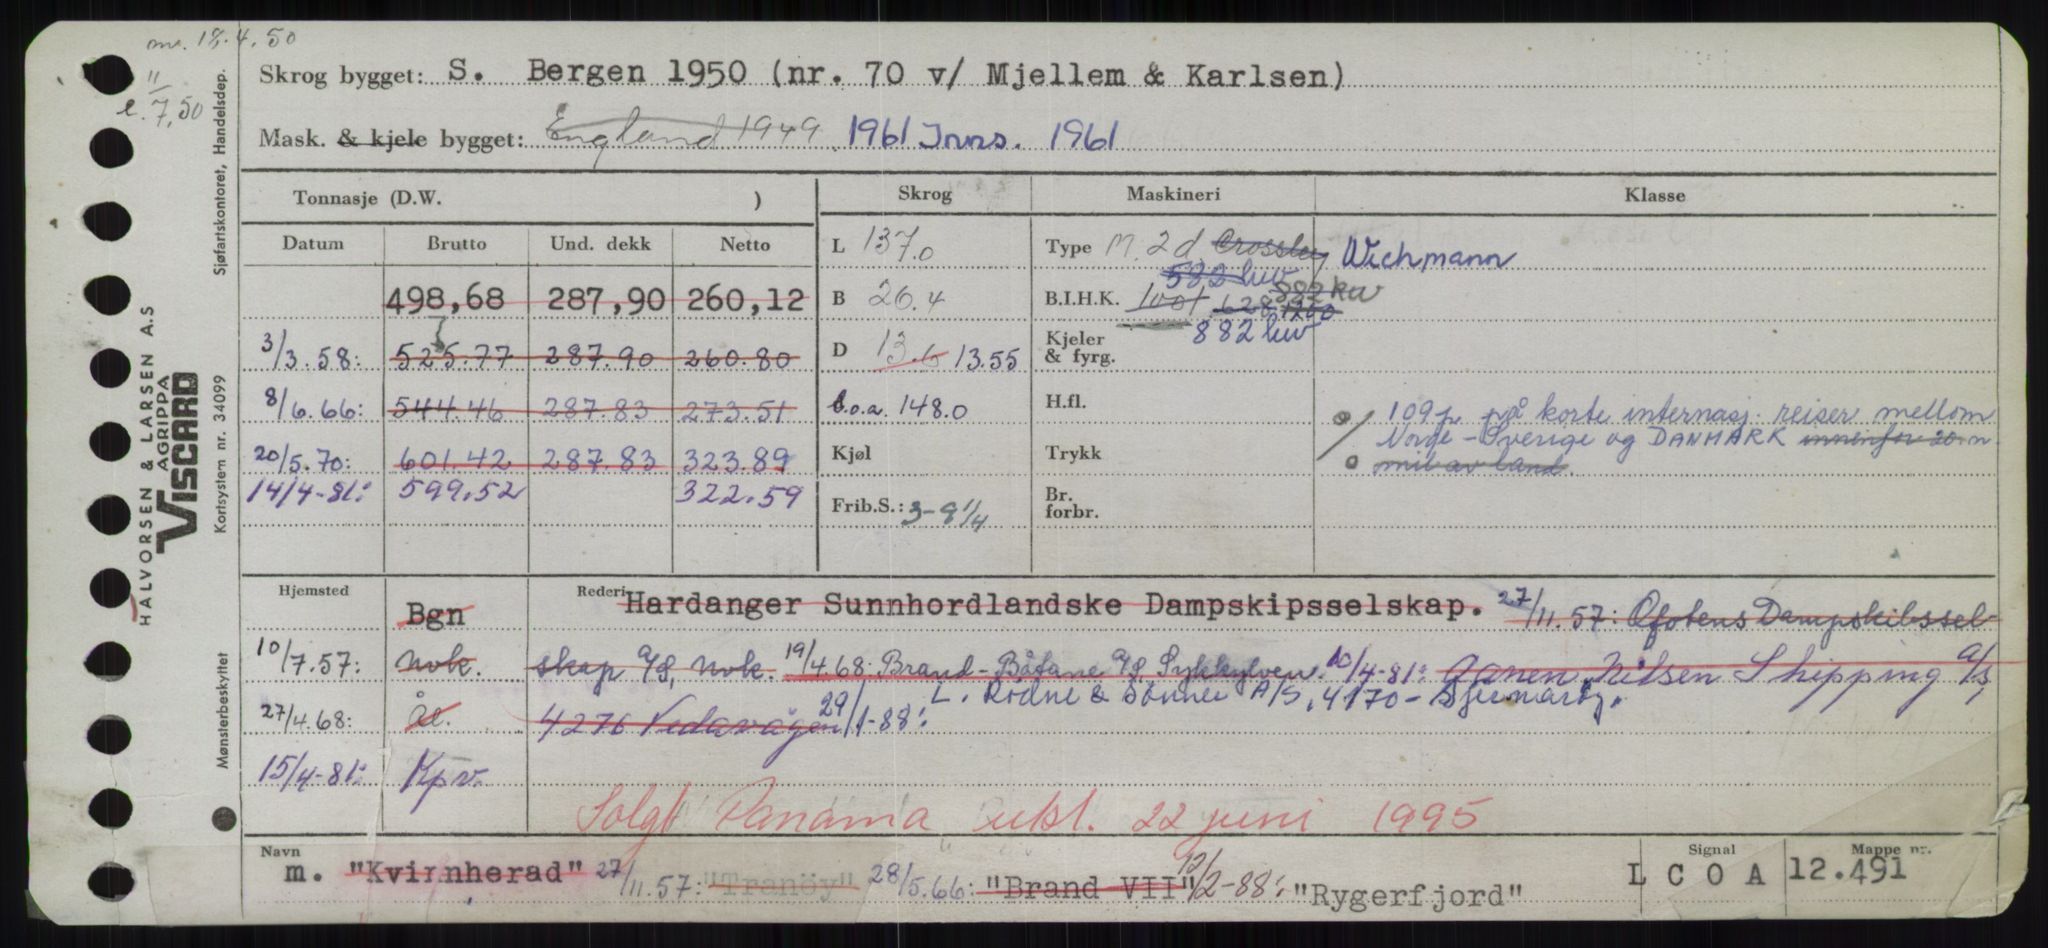 18.4.50
7.50
Skrog bygget: S. Bergen 1950 (nr. 70 v/ Mjellem & Karlsen)
Mask. & kjele bygget: England 1949 1961 Inns. 1961
Tonnasje (D.W. ) Skrog Maskineri Klasse
Datum Brutto Und. dekk Netto
L 137.0 Type M. 2 d Crossley Wichmann
582 kw
498,68 287,90 260,12 B 26.4 B.I.H.K. 628 1200 882 kw
882 kw
3/3.58: 525.77 287.90 260.80 D 13.6 13.55 Kjeler & fyrg.
8/6.66: 544.46 287.83 273.51 l.o.a. 148.0 H.fl. 109 p på korte internasj. reiser mellom
Norge - Sverige og DANMARK innenfor 20 n
20/5.70: 601.42 287.83 323.89 Kjøl Trykk mil av land.
14/4-81: 599.52 322.59 Frib.S.: 3-8 1/4 Br. forbr.
Hjemsted Bgn Rederi Hardanger Sunnhordlandske Dampskipsselskap. 27/11.57: Ofotens Dampskibssel-
10/7.57: Nvk. skap A/S, Nvk. 19/4.68: Brand-Båtane A/S, Sykkylven. 10/4-81: Nilsen Shipping A/S,
27/4.68: Ål. 4276 Vedavågen 29/1-88: L. Rödne & Sönner A/S, 4170 - Sjernaröy.
15/4-81: Kpv.
Solgt Panama 22 juni 1995
Navn m. "Kvinnherad" 27/11.57: "Tranöy" 28/5.66: "Brand VII" 12/2-88: "Rygerfjord" Signal L C O A Mappe nr. 12.491
HALVORSEN & LARSEN A.S
AGRIPPA
VISCARD
Sjøfartskontoret, Handelsdep.
Kortsystem nr. 34099
Mønsterbeskyttet